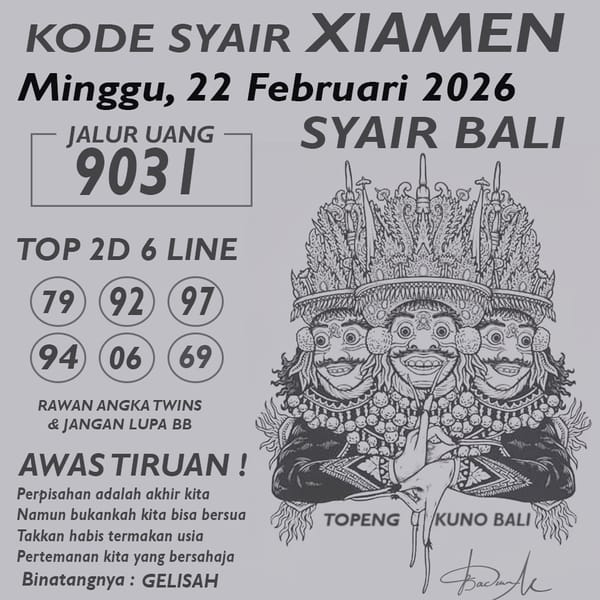 KODE SYAIR XIAMEN
Minggu, 22 Februari 2026
SYAIR BALI
JALUR UANG
9031
TOP 2D 6 LINE
79 92 97
94 06 69
RAWAN ANGKA TWINS
& JANGAN LUPA BB
AWAS TIRUAN !
Perpisahan adalah akhir kita
Namun bukankah kita bisa bersua
Takkan habis termakan usia
Pertemanan kita yang bersahaja
Binatangnya : GELISAH
TOPENG KUNO BALI